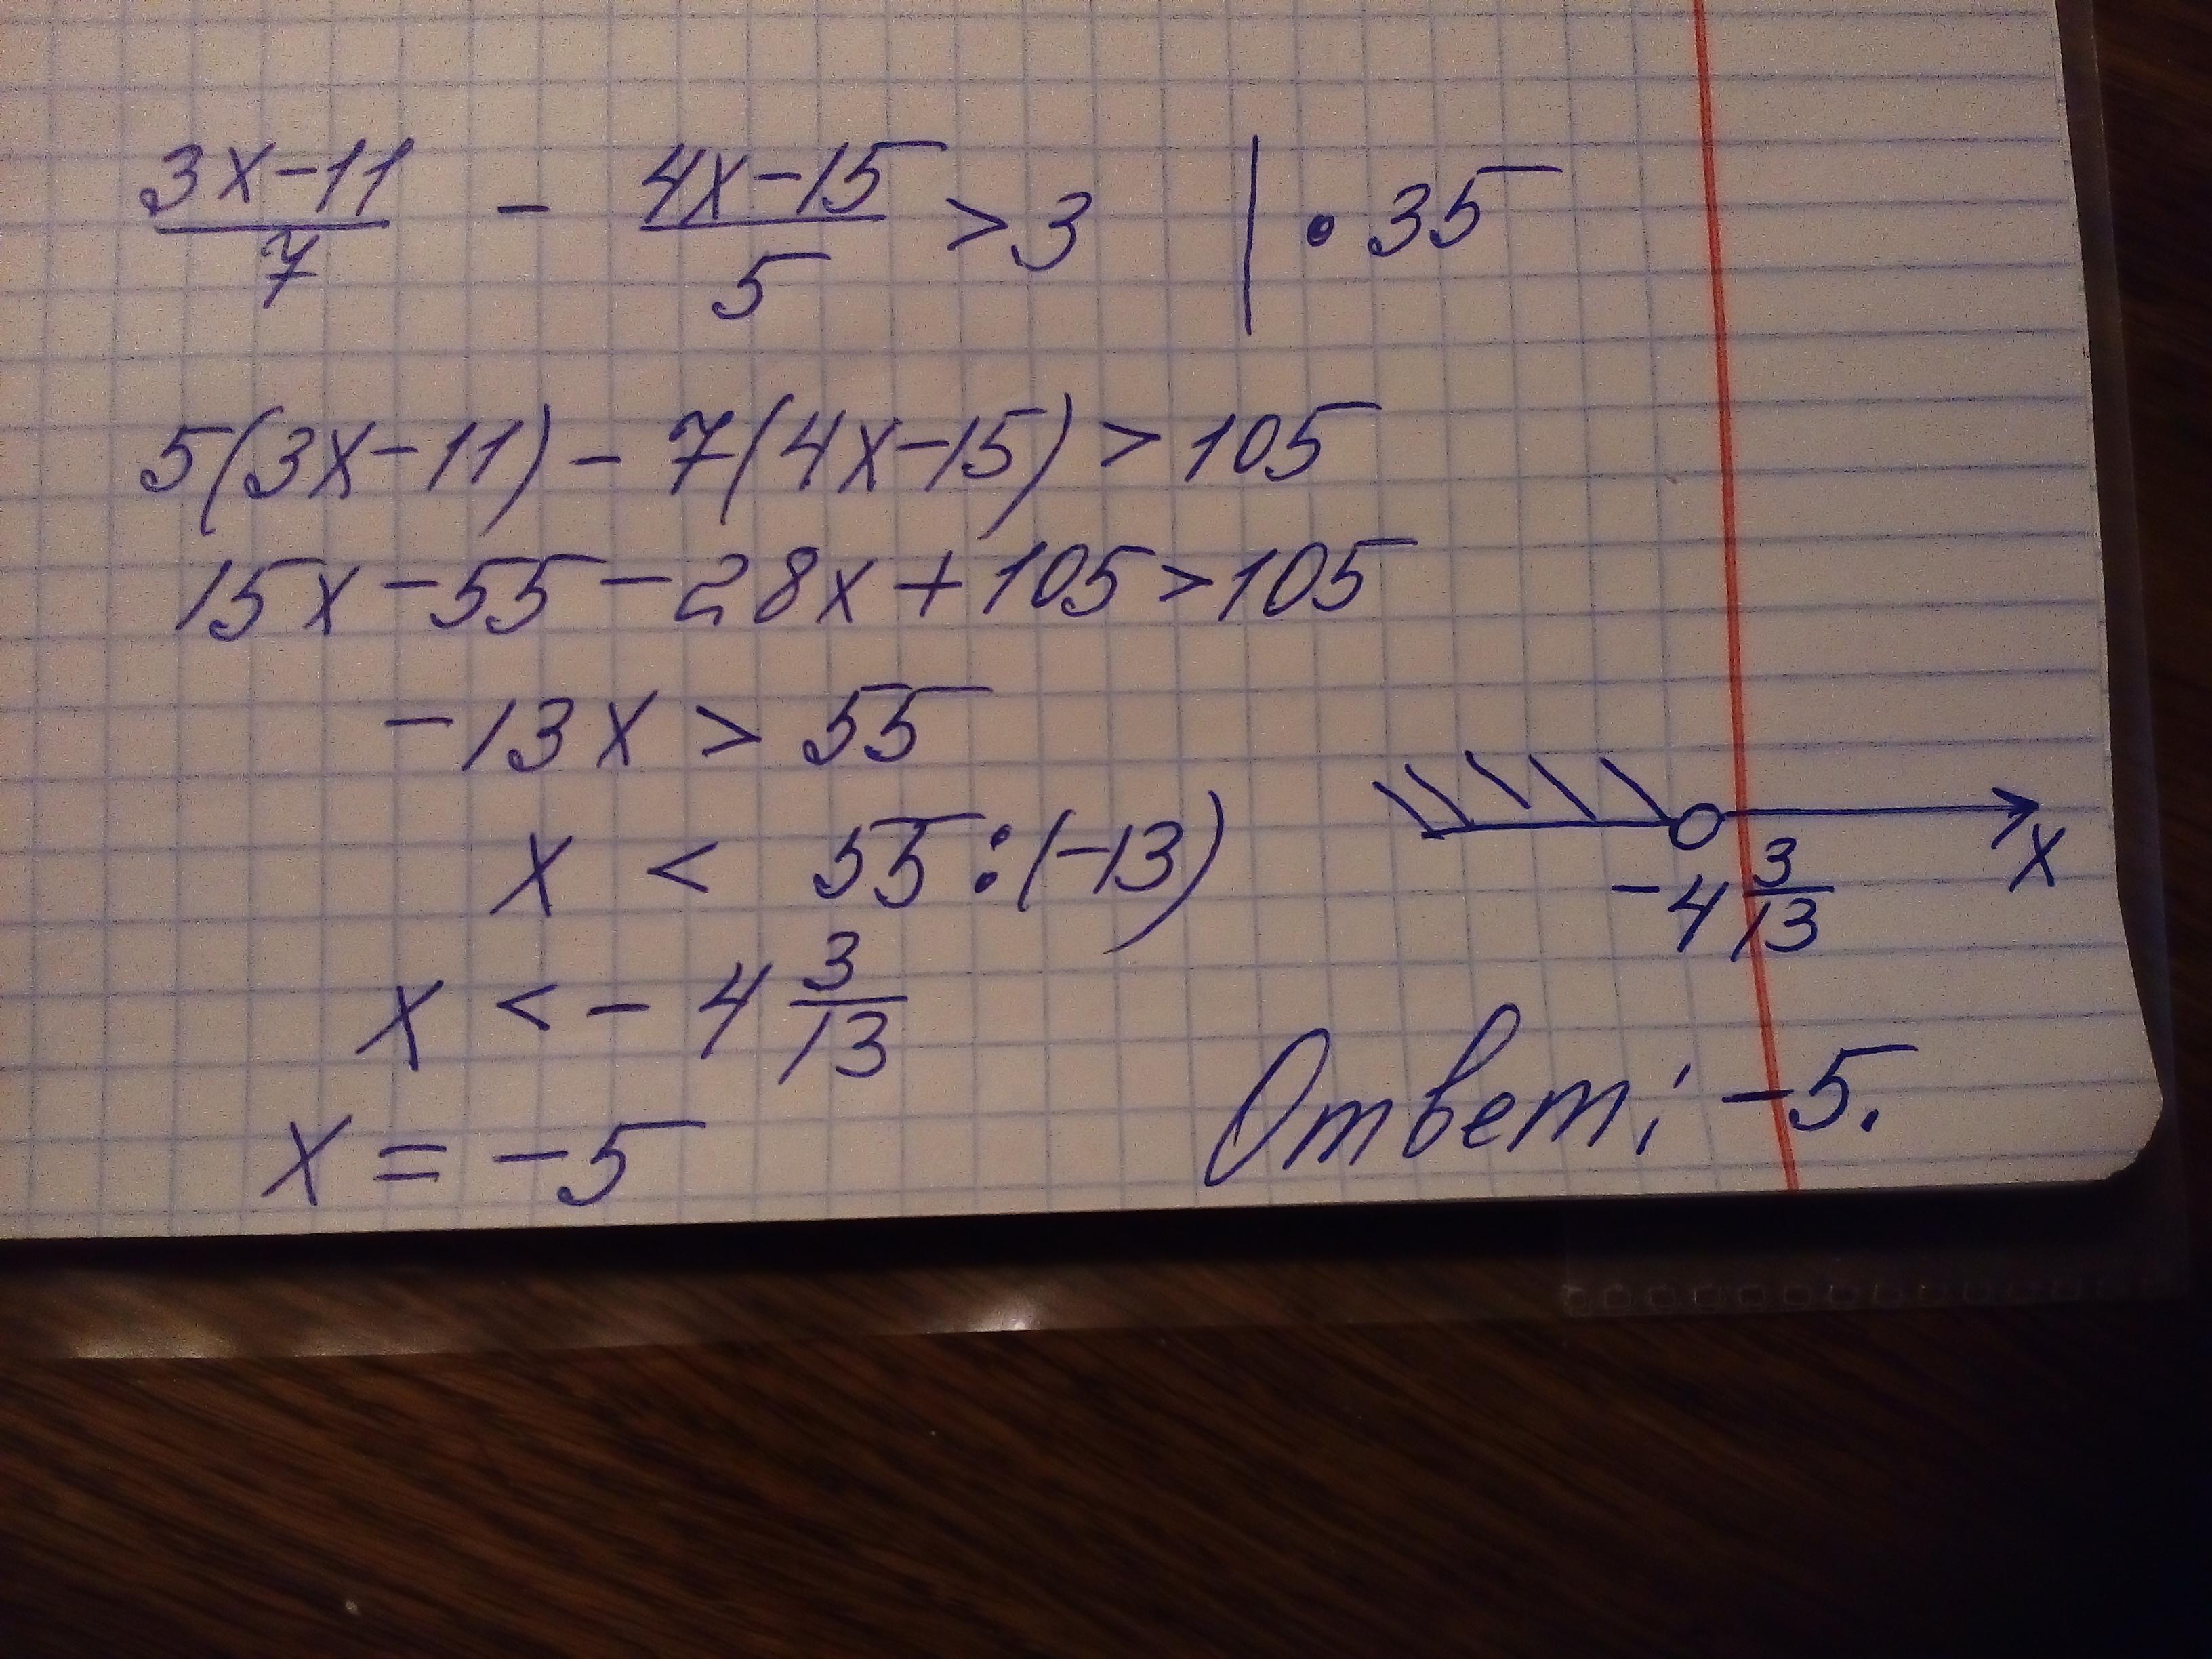 (3x-11)/7 - (4x-15)/5 > 3 | • 35
5(3x-11) - 7(4x-15) > 105
15x - 55 - 28x + 105 > 105
-13x > 55
x < 55 : (-13)
x < -4 3/13
x = -5
-4 3/13 x
Ответ: -5.